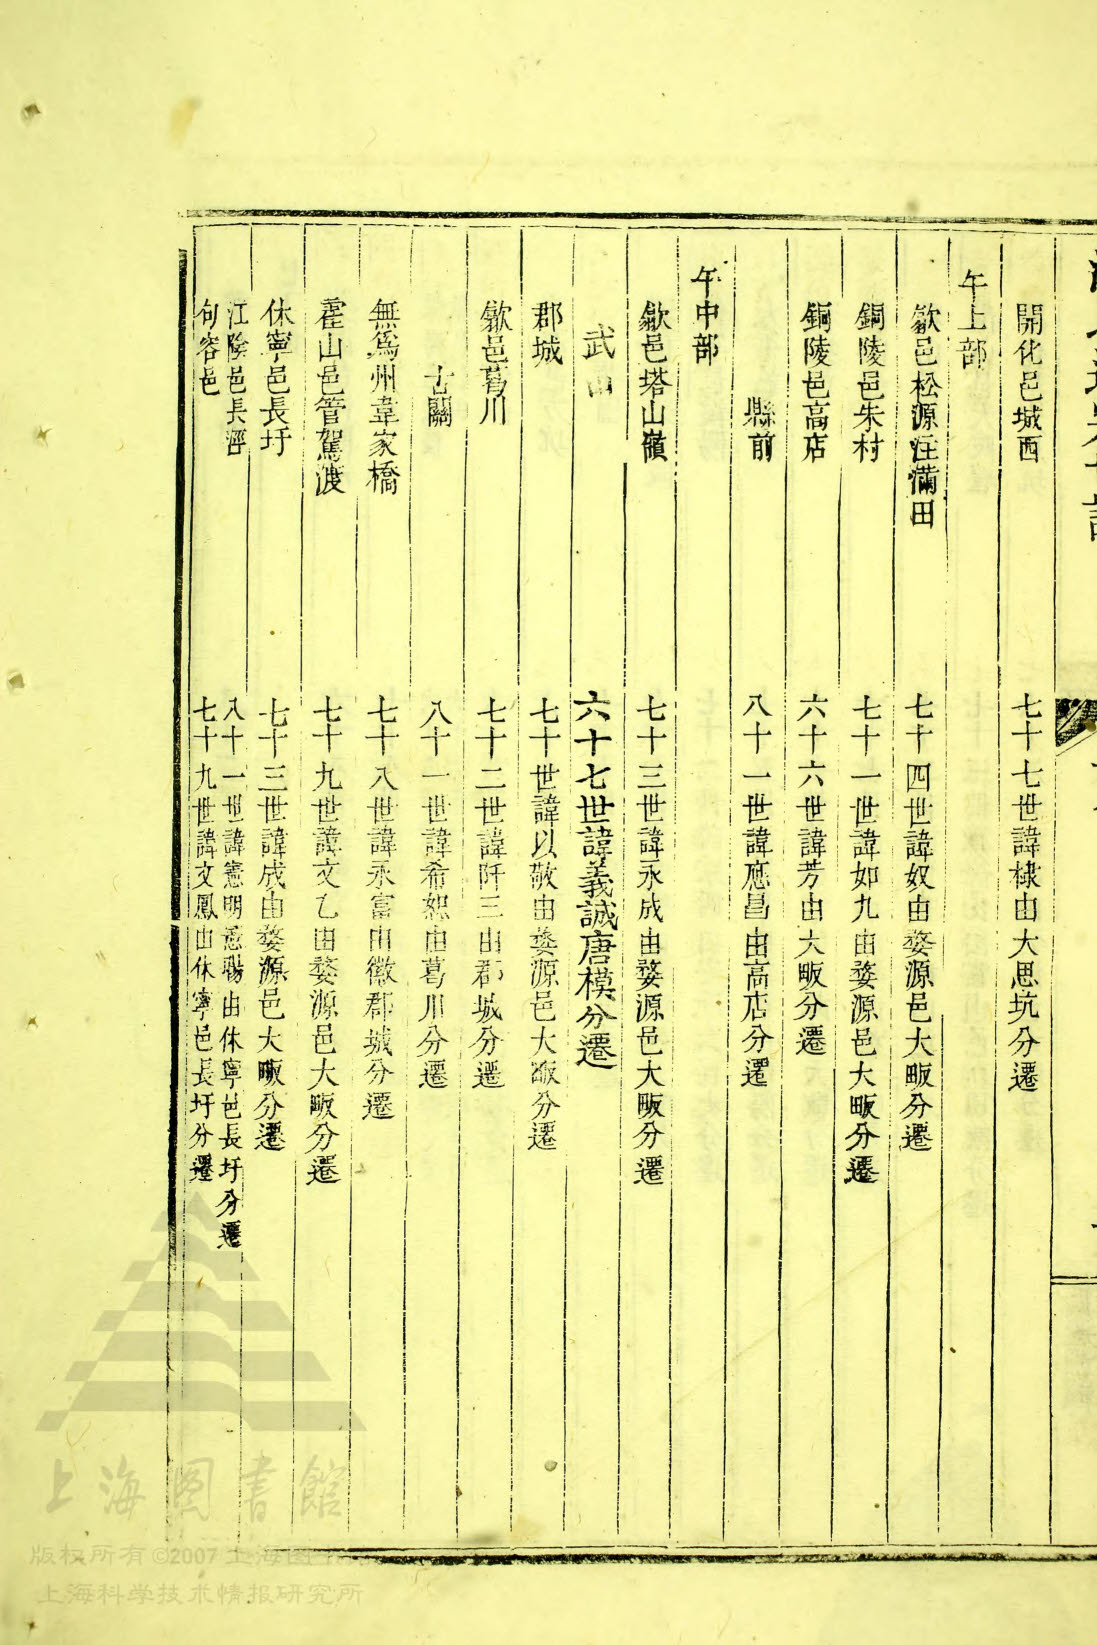 開化邑城西 七十七世諱棣由大思坑分遷
午上部
歙邑松源汪滿田 七十四世諱奴由婺源邑大畈分遷
銅陵邑朱村 七十一世諱如九由婺源邑大畈分遷
銅陵邑高店 六十六世諱芳由大畈分遷
縣前 八十一世諱應昌由高店分遷
午中部
歙邑塔山嶺 七十三世諱永成由婺源邑大畈分遷
武山 六十七世諱義誠唐模分遷
郡城 七十世諱以敬由婺源邑大畈分遷
歙邑葛川 七十二世諱阡三由郡城分遷
古關 八十一世諱希恕由葛川分遷
無為州韋家橋 七十八世諱永富由徽郡城分遷
霍山邑管駕渡 七十九世諱文乙由婺源邑大畈分遷
休寧邑長圩 七十三世諱成由婺源邑大畈分遷
江陰邑長涇 八十一世諱憲明憲暘由休寧邑長圩分遷
句容邑 七十九世諱文鳳由休寧邑長圩分遷
上海图書館
版权所有©2007上海图
上海科学技术情报研究所